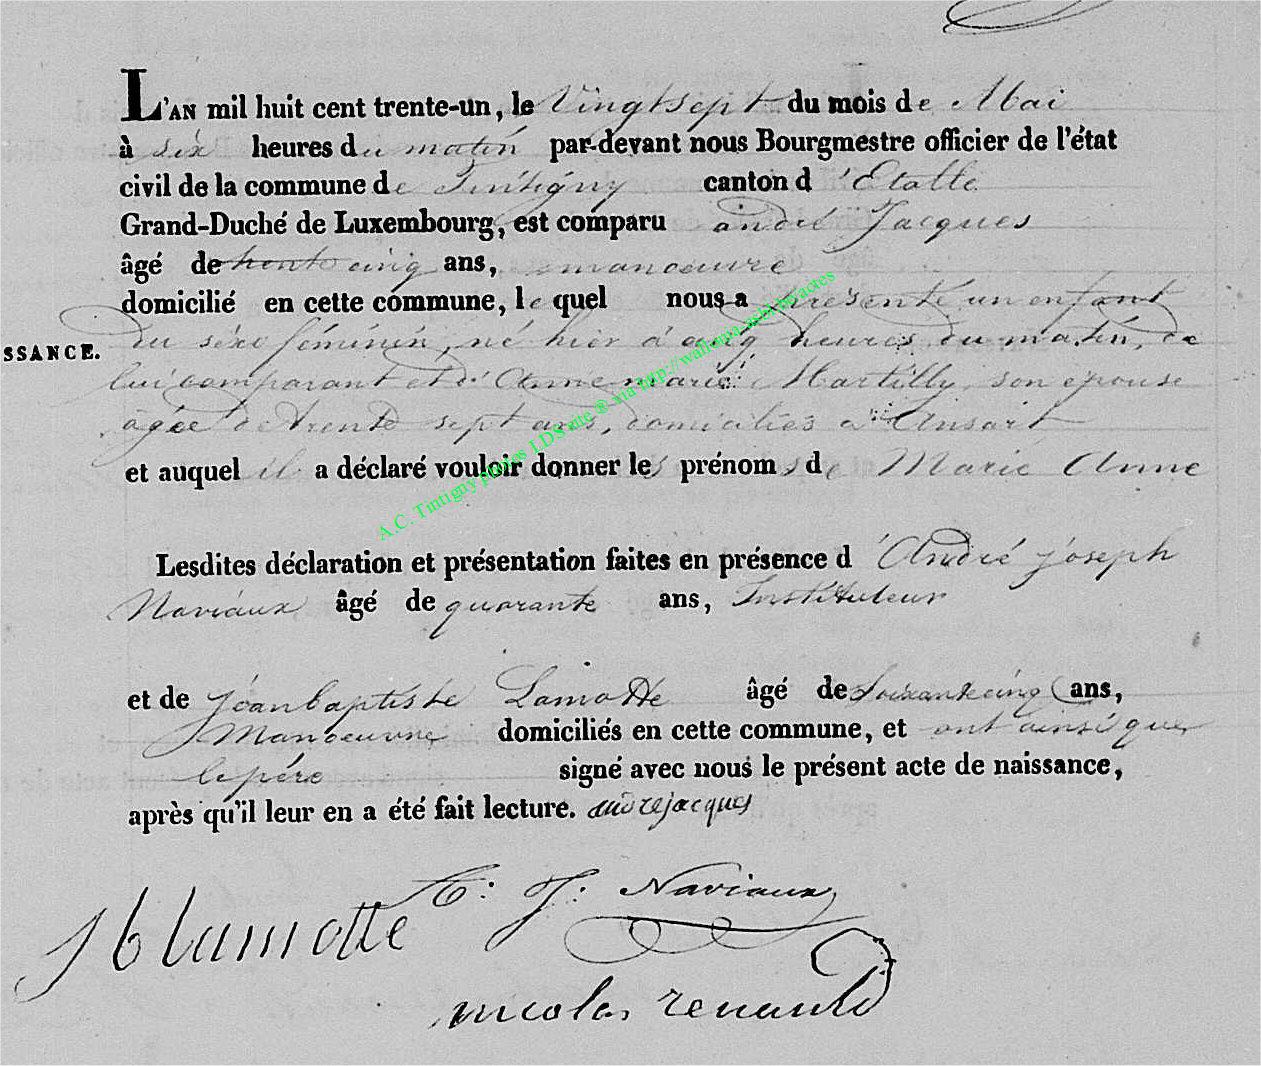 L'AN mil huit cent trente-un, le Vingtsept du mois de Mai
à six heures du matin par-devant nous Bourgmestre officier de l'état
civil de la commune de Tintigny canton d'Etalle
Grand-Duché de Luxembourg, est comparu andré Jacques
âgé de trente cinq ans, manoeuvre
domicilié en cette commune, lequel nous a présenté un enfant
SSANCE.
du séxe féminin, né hier à cinq heures du matin, de
lui comparant et d'Anne marie Martilly, son epouse
agée de trente sept ans, domiciliés a Ansart
et auquel il a déclaré vouloir donner les prénoms de Marie Anne
Lesdites déclaration et présentation faites en présence d'André joseph
Naviaux âgé de quarante ans, Instituteur
et de jéan baptiste Lamotte âgé de Soixante cinq ans,
Manoeuvre domiciliés en cette commune, et ont ainsi que
le père signé avec nous le présent acte de naissance,
après qu'il leur en a été fait lecture. andrejacques
J. Naviaux
J b lamotte
nicolas renauld
A.C. Tintigny photos LDS site ® via http://wallonia-asbl.be/actes